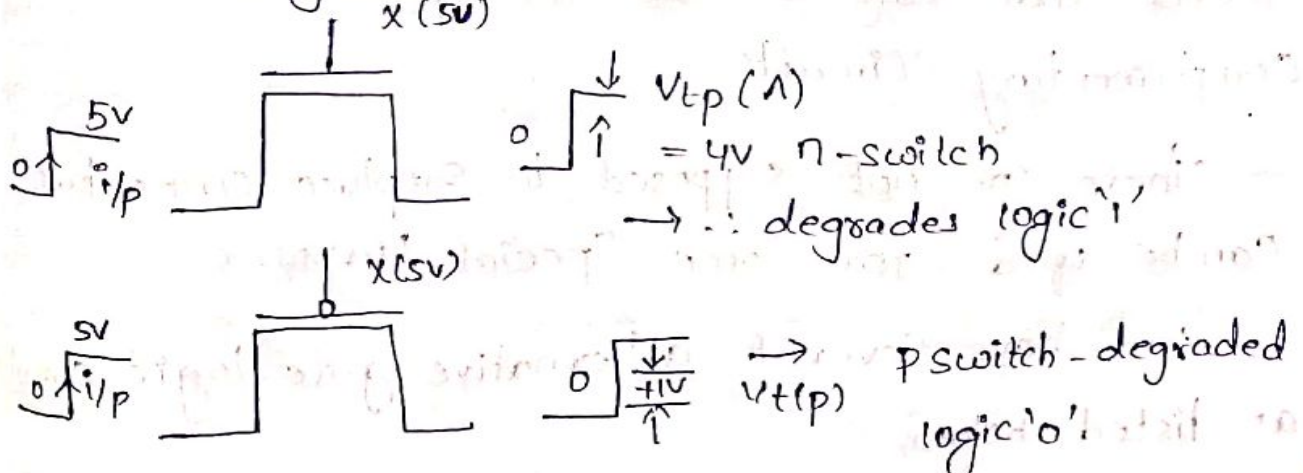 x (5v)
5v
0
i/p
0
Vtp (n)
= 4v n-switch
→ ∴ degrades logic '1'
x(5v)
5v
0 i/p
0
+1v
→ p switch - degraded
Vt(p)
logic '0'.